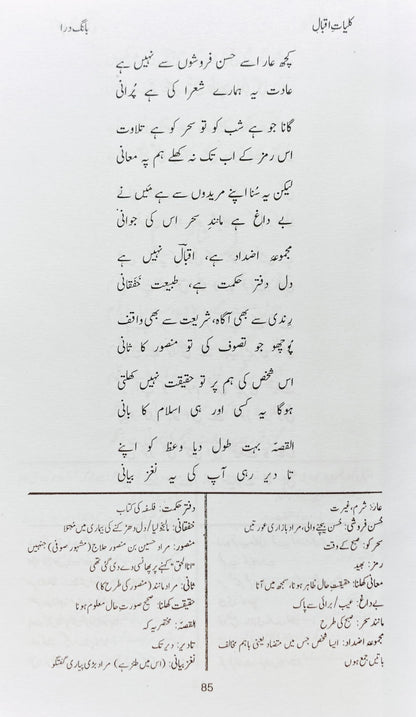 کلیاتِ اقبال
بانگِ درا
کچھ عار اسے حسن فروشوں سے نہیں ہے
عادت یہ ہمارے شعرا کی ہے پُرانی
گانا جو ہے شب کو تو سحر کو ہے تلاوت
اس رمز کے اب تک نہ کھلے ہم پہ معانی
لیکن یہ سُنا اپنے مریدوں سے ہے مَیں نے
بے داغ ہے مانندِ سحر اس کی جوانی
مجموعۂ اضداد ہے، اقبالؔ نہیں ہے
دل دفترِ حکمت ہے، طبیعت خفقانی
رِندی سے بھی آگاہ، شریعت سے بھی واقف
پُوچھو جو تصوف کی تو منصور کا ثانی
اس شخص کی ہم پر تو حقیقت نہیں کھلتی
ہوگا یہ کسی اور ہی اسلام کا بانی
القصّہ بہت طول دیا وعظ کو اپنے
تا دیر رہی آپ کی یہ نغز بیانی
عار: شرم، غیرت
حُسن فروشی: حُسن بیچنے والی، مراد بازاری عورتیں
سحر کو: صبح کے وقت
رمز: بھید
معانی کھلنا: حقیقتِ حال ظاہر ہونا، سمجھ میں آنا
بے داغ: عیب/برائی سے پاک
مانندِ سحر: صبح کی طرح
مجموعۂ اضداد: ایسا شخص جس میں متضاد یعنی باہم مخالف
باتیں جمع ہوں
دفترِ حکمت: فلسفہ کی کتاب
خفقانی: مالیخولیا/دل دھڑکنے کی بیماری میں مبتلا
منصور: مراد حسین بن منصور حلاج (مشہور صوفی) جنہیں
"انا الحق" کہنے پر پھانسی دے دی گئی تھی
ثانی: مراد مانند (منصور کی طرح کا)
حقیقت کھلنا: صحیح صورتِ حال معلوم ہونا
القصّہ: مختصر یہ کہ
تا دیر: دیر تک
نغز بیانی: (اس میں طنز ہے) مراد بڑی پیاری گفتگو
85